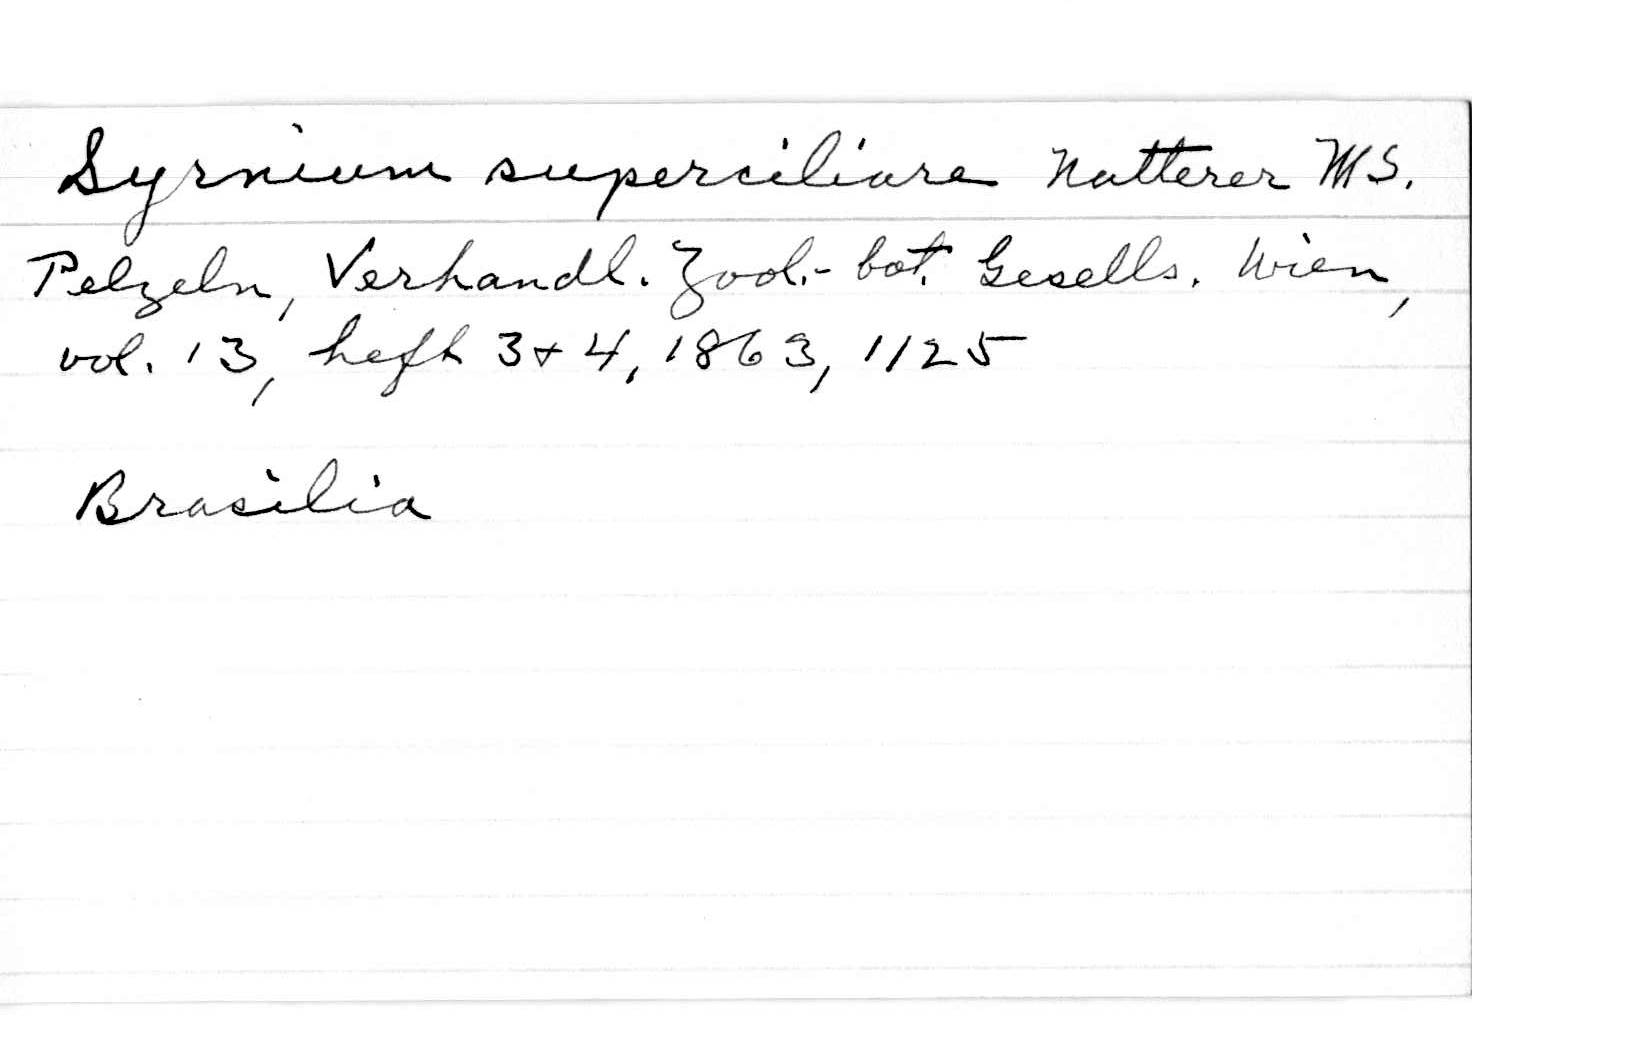 Syrnium superciliare Natterer MS.
Pelzeln, Verhandl. Zool.-bot. Gesells. Wien,
vol. 13, heft 3+4, 1863, 1125
Brasilia